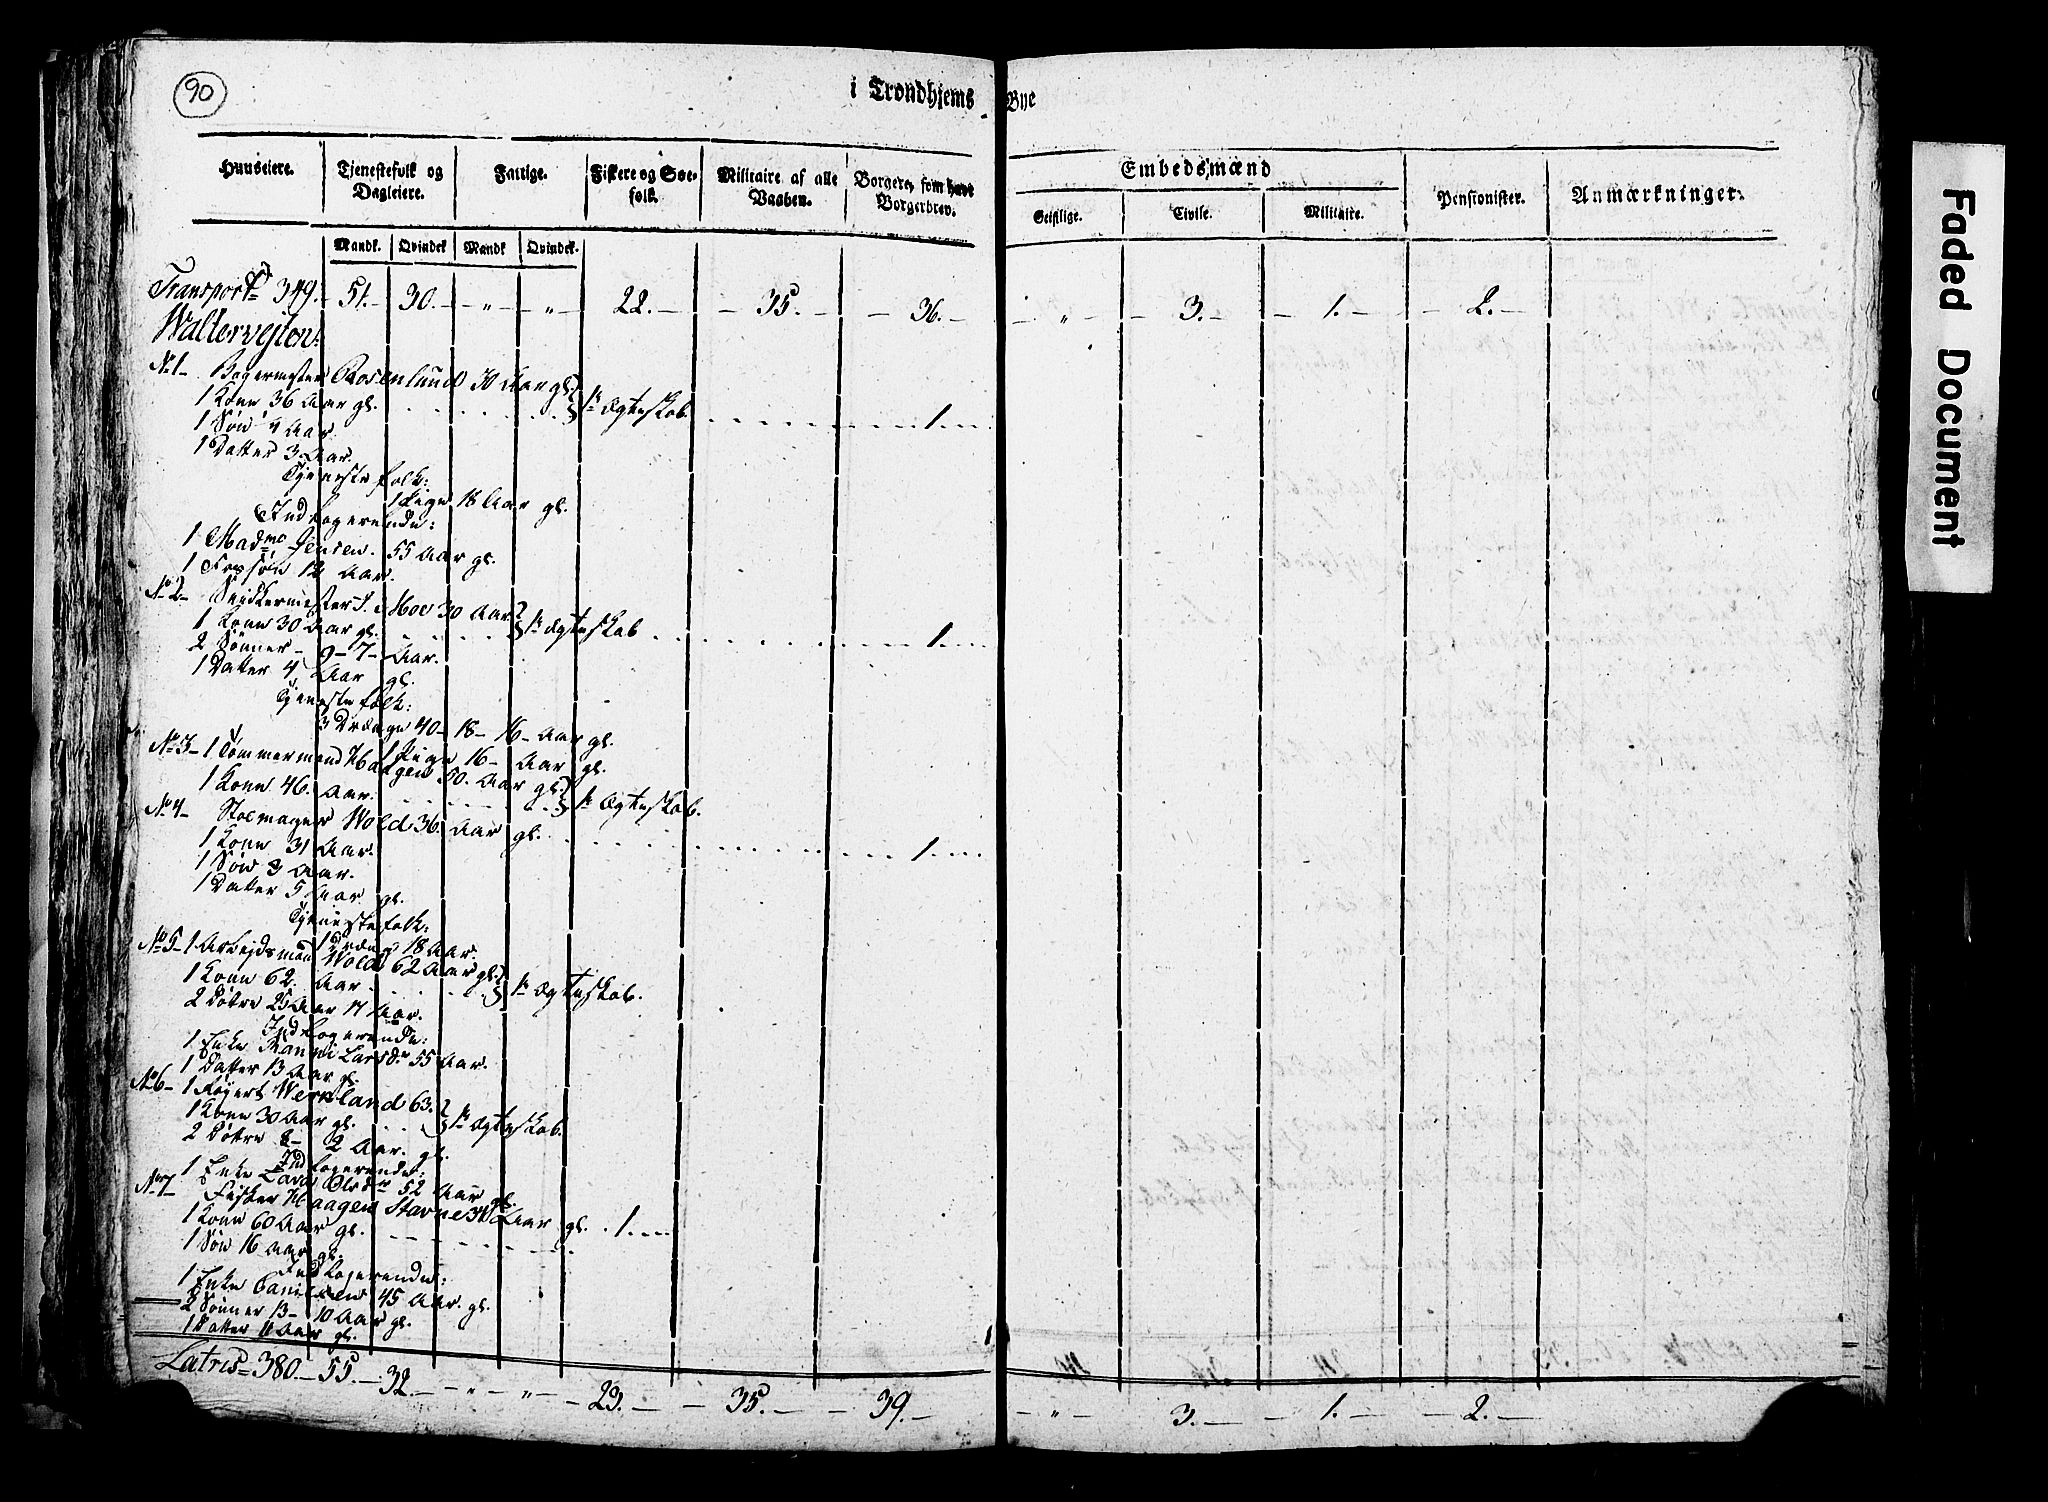 90
i Trondhjems Bye
Huuseiere. Tjenestefolk og Dagleiere. Fattige. Fiskere og Søe-folk. Militaire af alle Vaaben. Borgere, som have Borgerbrev. Embedsmænd Pensionister. Anmærkninger.
Geistlige. Civile. Militaire.
Mandk. Qvindek Mandk Qvindek.
Transport 349. 51. 30. " " 22. 35. 36. " 3. 1. 2.
No 1 Bogermester Rosenlund 30 Aar gl.
1 Kone 36 Aar gl. 1te Ægteskab 1.
1 Søn 4 Aar
1 Datter 3 Aar.
Tjeneste folk:
1 Pige 18 Aar gl.
Indlogerende:
1 Madme Jensen. 55 Aar gl.
1 Søn 12 Aar.
No 2 Snidkermester J. Moe 30 Aar
1 Kone 30 Aar gl. 1te Ægteskab 1.
2 Sønner 9 - 7 - Aar.
1 Datter 4 Aar gl.
Tjeneste folk:
3 Drænge 40 - 18 - 16 - Aar gl.
1 Pige 16 - Aar gl.
No 3 - 1 Tømmermand Haagen 50. Aar gl.
1 Kone 46. Aar. 1te Ægteskab.
No 4 Stolmager Wold 36. Aar gl.
1 Kone 31 Aar. 1.
1 Søn 3 Aar.
1 Datter 5 Aar gl.
Tjenestefolk:
1 Dræng 18 Aar.
No 5 - 1 Arbejdsmand Wold 62 Aar gl.
1 Kone 62. Aar 1te Ægteskab.
2 Døtre 25 Aar 17 Aar.
Indlogerende:
1 Enke Larsdr 55 Aar.
1 Datter 13 Aar gl.
No 6 - 1 Wermland 63.
1 Kone 30 Aar gl. 1te Ægteskab.
2 Døtre 8 - 2 Aar. gl.
Indlogerende:
1 Enke Olsdr 52 Aar gl.
No 7 Fisker Haagen Stavne Aar gl. 1.
1 Kone 60 Aar gl.
1 Søn 16 Aar gl.
Indlogerende:
1 Enke Danielsen 45 Aar. gl.
2 Sønner 13 - 10 Aar gl.
1 Datter 11 Aar gl.
Latris 380. 55. 32. " " 23. 35. 39. " 3. 1. 2.
Faded Document